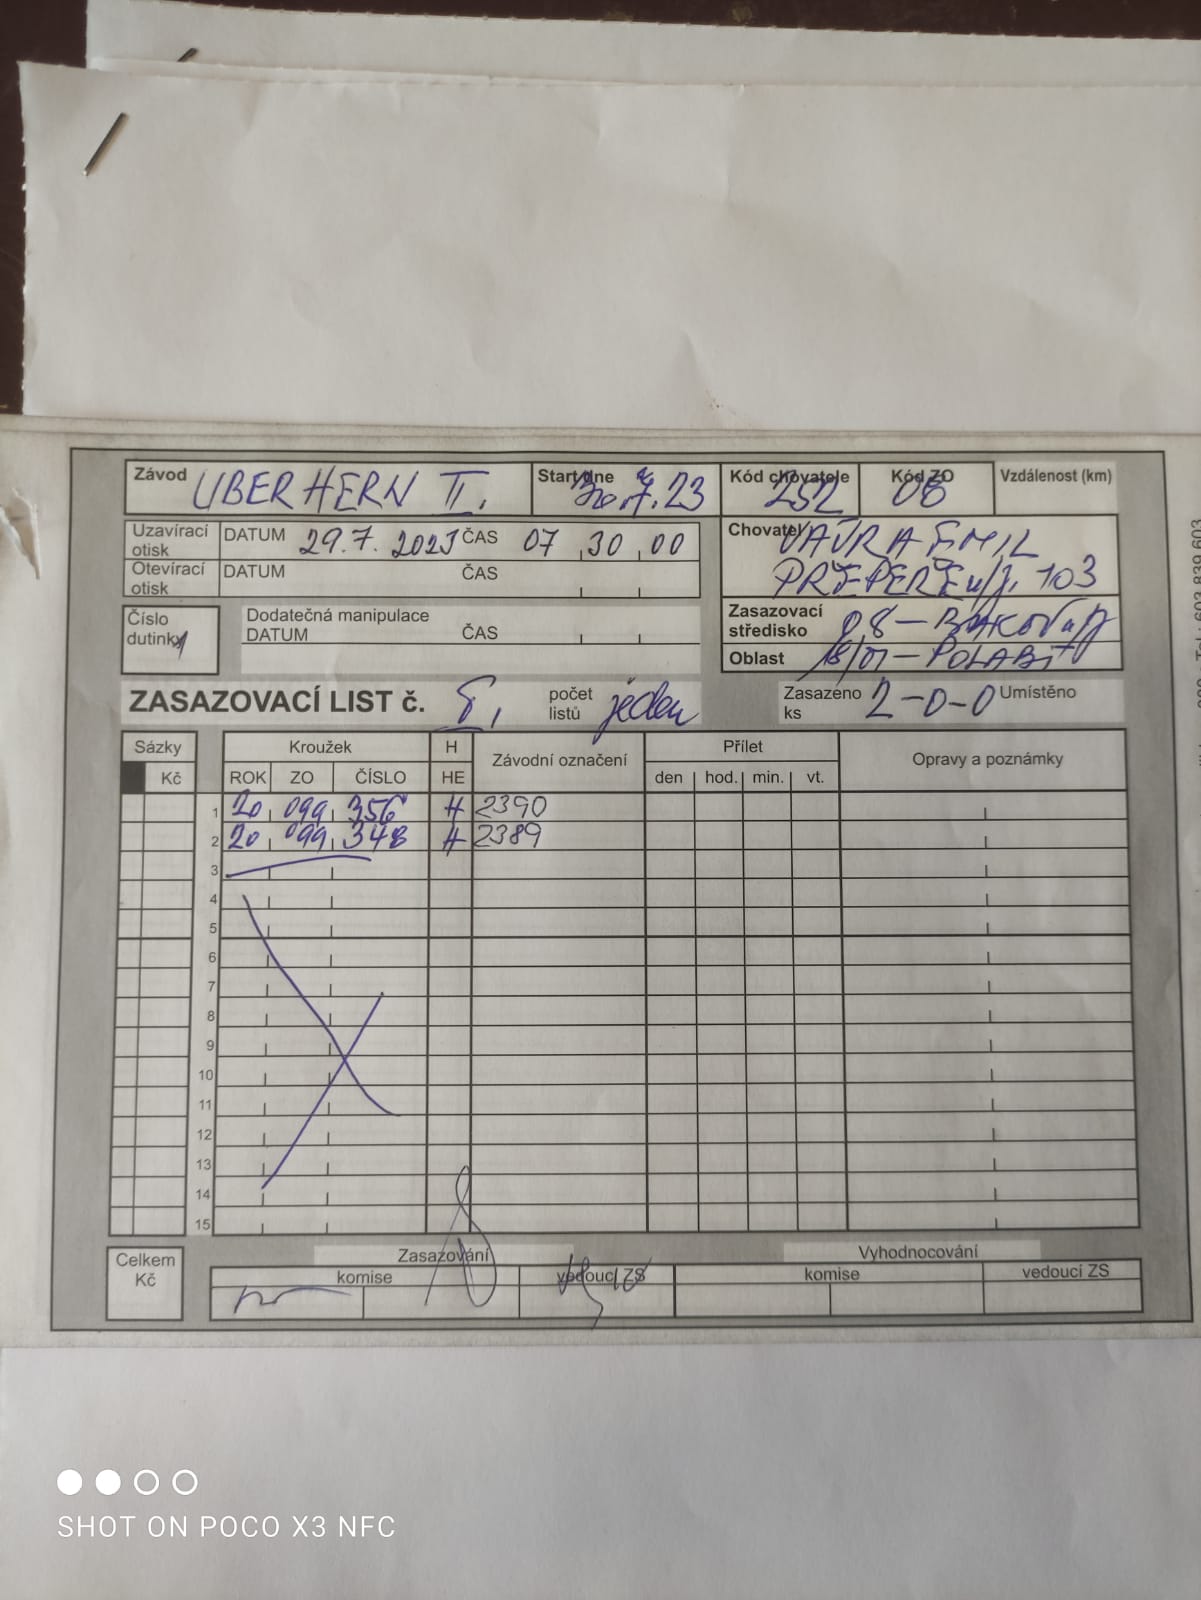 Závod UBERHERN II. Start dne 30.7.23 Kód chovatele 252 Kód ZO 08 Vzdálenost (km)
Uzavírací otisk DATUM 29.7.2023 ČAS 07 30 00
Chovatel VAVRA EMIL
Otevírací otisk DATUM ČAS
PŘEPEŘE 103
Číslo dutinky 1 Dodatečná manipulace
DATUM ČAS
Zasazovací středisko 08 - BAKOV
Oblast - POLABÍ
ZASAZOVACÍ LIST č. 8, počet listů jeden Zasazeno ks 2-0-0 Umístěno
Sázky Kroužek H Závodní označení Přílet Opravy a poznámky
Kč ROK ZO ČÍSLO HE den hod. min. vt.
1 20 099 356 H 2390
2 20 099 348 H 2389
3
4
5
6
7
8
9
10
11
12
13
14
15
Celkem Kč Zasazování Vyhodnocování
komise vedoucí ZS komise vedoucí ZS
SHOT ON POCO X3 NFC